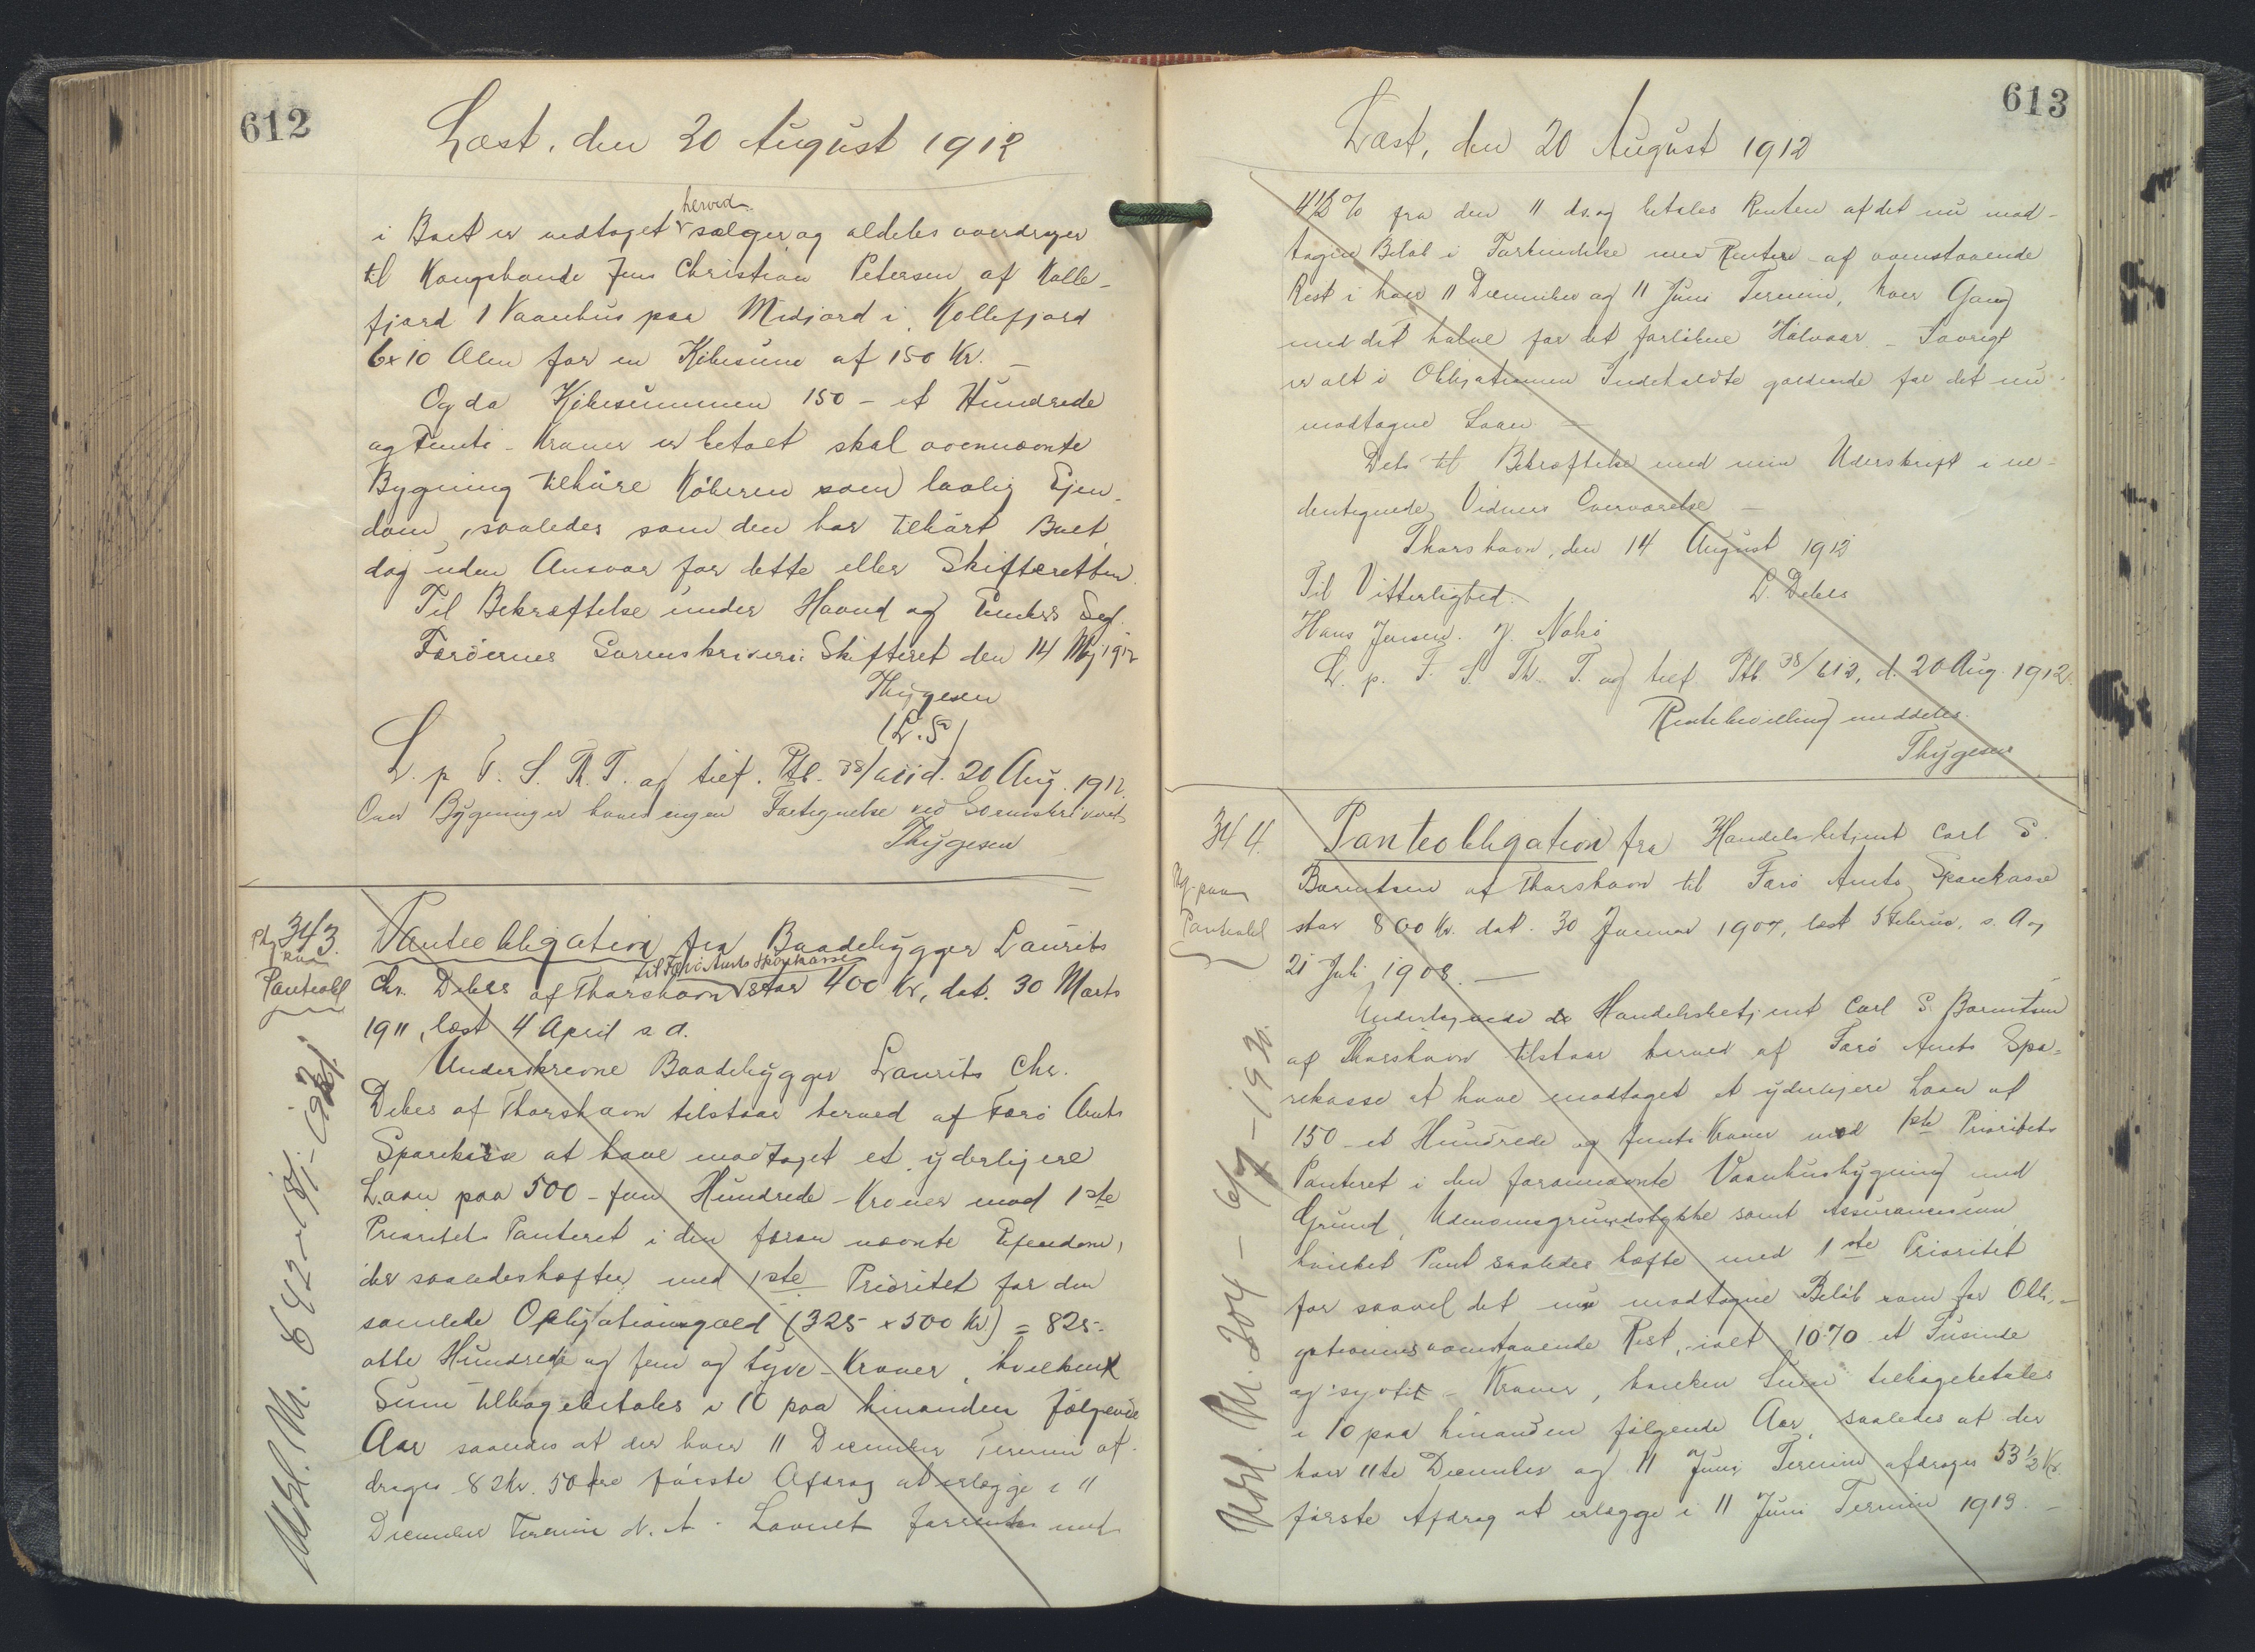 612
Læst, den 20 August 1912
herved
i Boet er vedtaget sælger og aldeles overdrager
til Kongsbonde Jens Christian Petersen af Kolle-
fjord 1 Vaanhus paa Midjord i Kollefjord
6x10 Alen for en Købesum af 150 Kr. -
Og da Købesummen 150 - et Hundrede
og Femti - Kroner er betalt skal ovennævnte
Bygning tilhøre Køberen som lovlig Ejen-
dom, saaledes som den har tilhørt Boet,
dog uden Ansvar for dette eller Skifteretten.
Til Bekræftelse under Haand og Embeds Segl.
Færøernes Sorenskriveri Skifteret den 14 Maj 1912
Thygesen
(L.S.)
L. p. F. S. Th. T. og tilf. Ptb. 38/611 d. 20 Aug. 1912.
Over Bygninger haves ingen Fortegnelse ved Sorenskriveriet
Thygesen
343.
Ptg
paa
Panteobl
Udsl. M.
Panteobligation fra Baadebygger Laurits
til Færø Amts Sparekasse
Chr. Debes af Thorshavn stor 400 Kr, dat. 30 Marts
1911, læst 4 April s. A.
Underskrevne Baadebygger Laurits Chr.
Debes af Thorshavn tilstaar herved af Færø Amts
Sparekasse at have modtaget et yderligere
Laan paa 500 - fem Hundrede - Kroner mod 1ste
Prioritets Panteret i den foran nævnte Ejendom,
der saaledes hæfter med 1ste Prioritet for den
samlede Obligationsgæld (325 x 500 Kr) = 825-
otte Hundrede og fem og tyve - Kroner, hvilken
Sum tilbagebetales i 10 paa hinanden følgende
Aar saaledes at der hver 11 December Termin af-
drages 82 Kr. 50 Øre første Afdrag at erlægge i 11
December Termin d. A. - Laanet forrentes med
613
Læst, den 20 August 1912
4½ % fra den 11 ds. og betales Renten af det nu mod-
tagne Beløb i Forbindelse med Renten af ovenstaaende
Rest i hver 11 December og 11 Juni Termin, hver Gang
med det halve for det forløbne Halvaar - Iøvrigt
er alt i Obligationen Indeholdte gældende for det nu
modtagne Laan -
Dets til Bekræftelse med min Underskrift i ne-
dentegnede Vidners Overværelse -
Thorshavn, den 14 August 1912
Til Vitterlighed.
L. Debes
Hans Jensen. J. Nolsø
L. p. F. S. Th. T. og tilf. Ptb. 38/612, d. 20 Aug. 1912.
Rentebevilling meddeles.
Thygesen
344.
Ptg. paa
Panteobl
Udsl. M. 204 - 6/7 - 1930.
Panteobligation fra Handelsbetjent Carl S.
Barentsen af Thorshavn til Færø Amts Sparekasse
stor 800 Kr. dat. 30 Januar 1907, læst 5 Februar s. A og
21 Juli 1908. -
Undertegnede Handelsbetjent Carl S. Barentsen
af Thorshavn tilstaar herved af Færø Amts Spa-
rekasse at have modtaget et yderligere Laan af
150 - et Hundrede og femti Kroner mod 1ste Prioritets
Panteret i den forannævnte Vaanhusbygning med
Grund, Udenomsgrundstykke samt Assurancesum
hvilket Pant saaledes hæfte med 1ste Prioritet
for saavel det nu modtagne Beløb som for Obli-
gationens ovenstaaende Rest, ialt 1070 - et Tusinde
og syvti - Kroner, hvilken Sum tilbagebetales
i 10 paa hinanden følgende Aar, saaledes at der
hver 11te December og 11 Juni Termin afdrages 53½ Kr.
første Afdrag at erlægge i 11 Juni Termin 1913. -